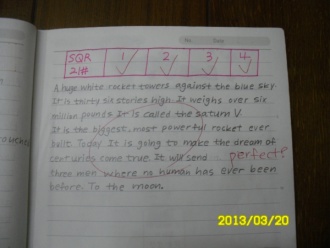 No. Date.
SQR 1 2 3 4
21#
A huge white rocket towers against the blue sky.
It is thirty six stories high. It weighs over six
million pounds. It is called the saturn V.
It is the biggest, most powerful rocket ever
built. Today. It is going to make the dream of
centuries come true. It will send perfect!
three man where no human has ever been
before. To the moon.
2013/03/20